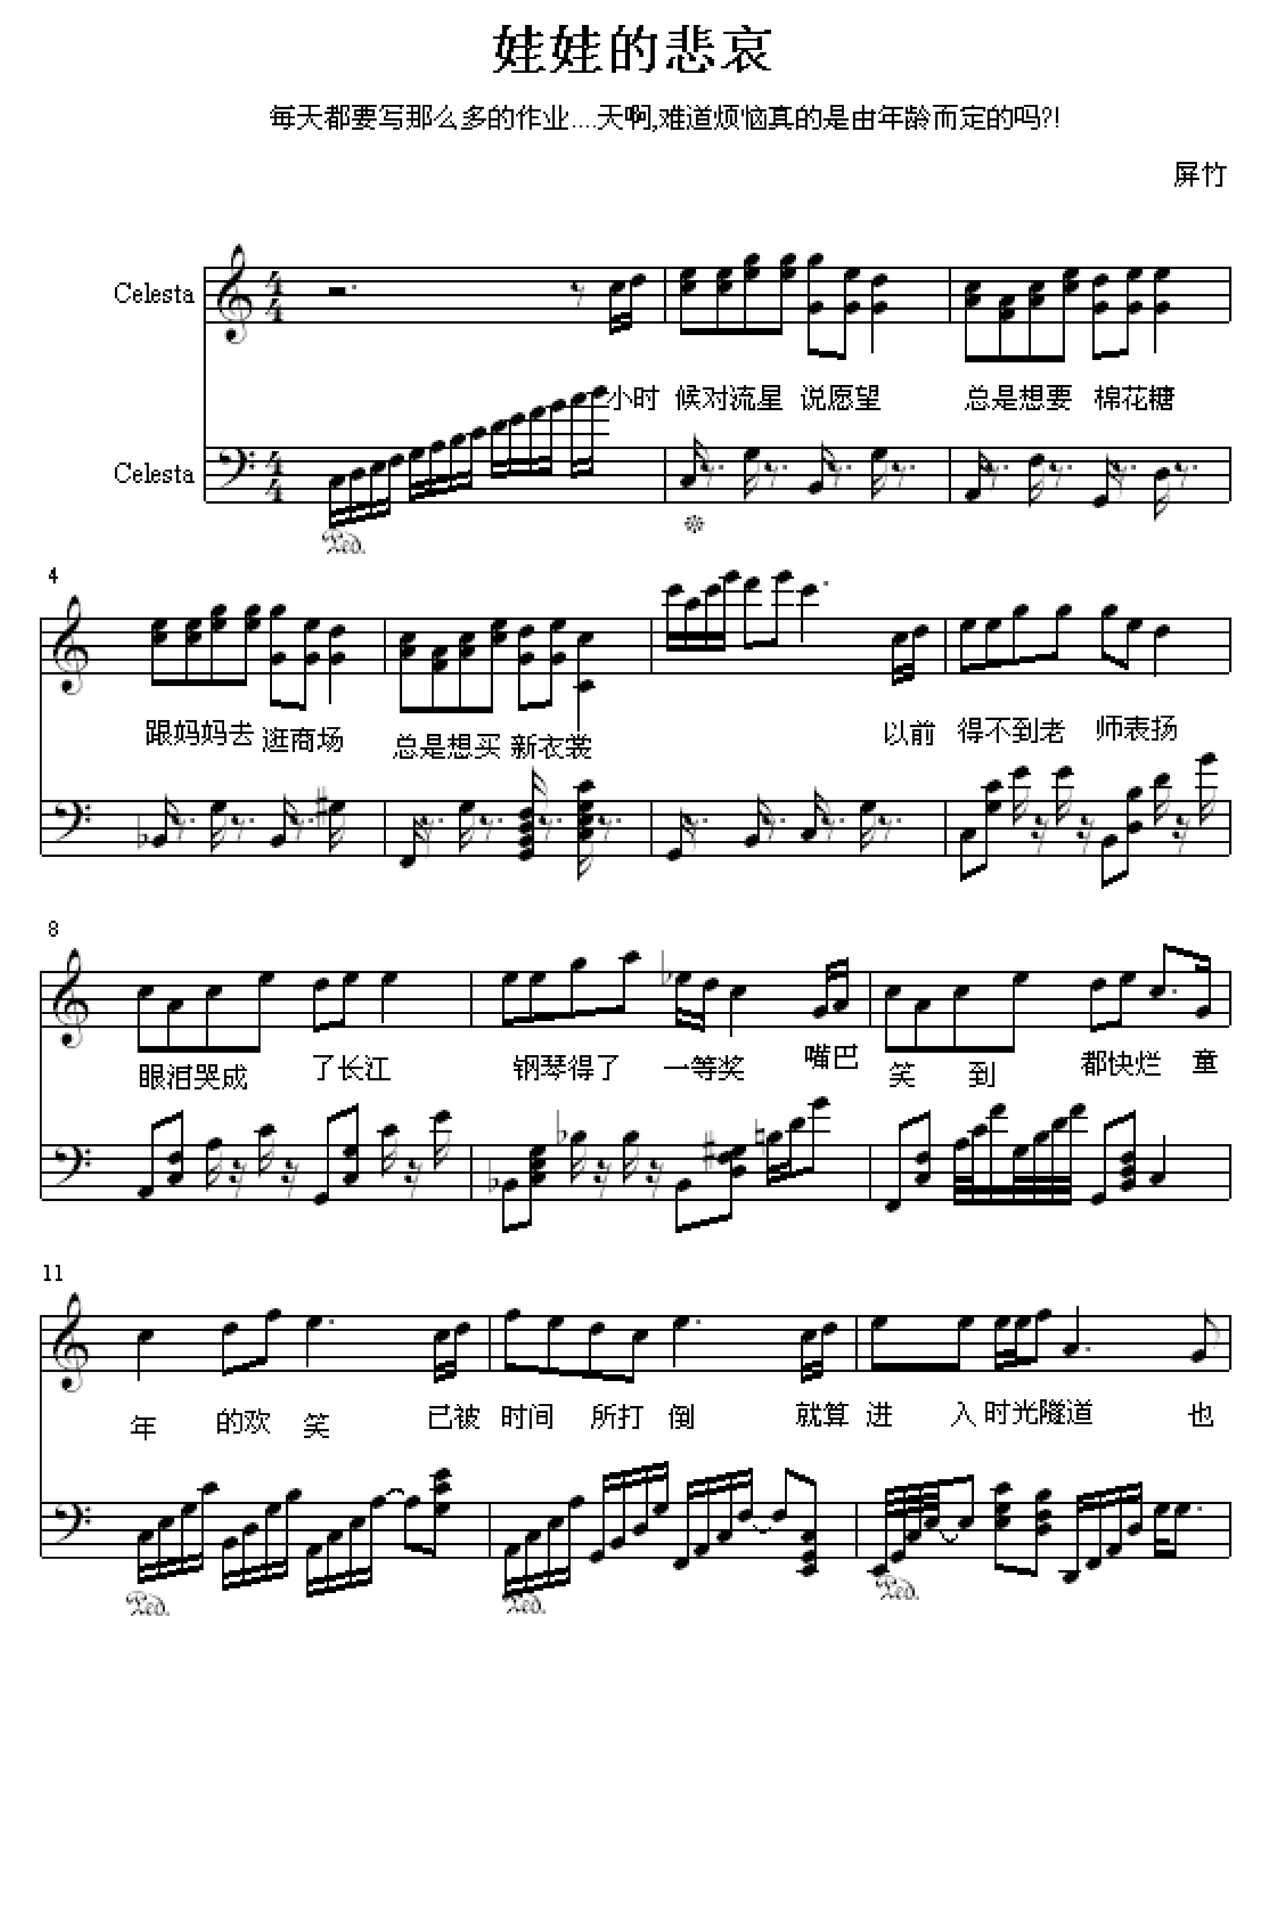 娃娃的悲哀
每天都要写那么多的作业....天啊,难道烦恼真的是由年龄而定的吗?!
屏竹
Celesta
小时 候对流星 说愿望 总是想要 棉花糖
Celesta
4
跟妈妈去 逛商场 总是想买 新衣裳 以前 得不到老 师表扬
8
眼泪哭成 了长江 钢琴得了 一等奖 嘴巴 笑 到 都快烂 童
11
年 的欢 笑 已被 时间 所打 倒 就算 进 入 时光隧道 也